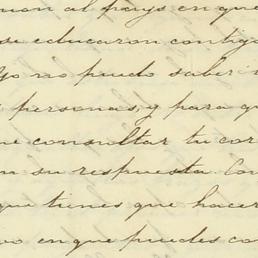 al pays en que
se educaron contigo
Yo no puedo saber
personas, y para q
consultar tu cor
su respuesta. Con
que tienes que hacer
en que puedes co